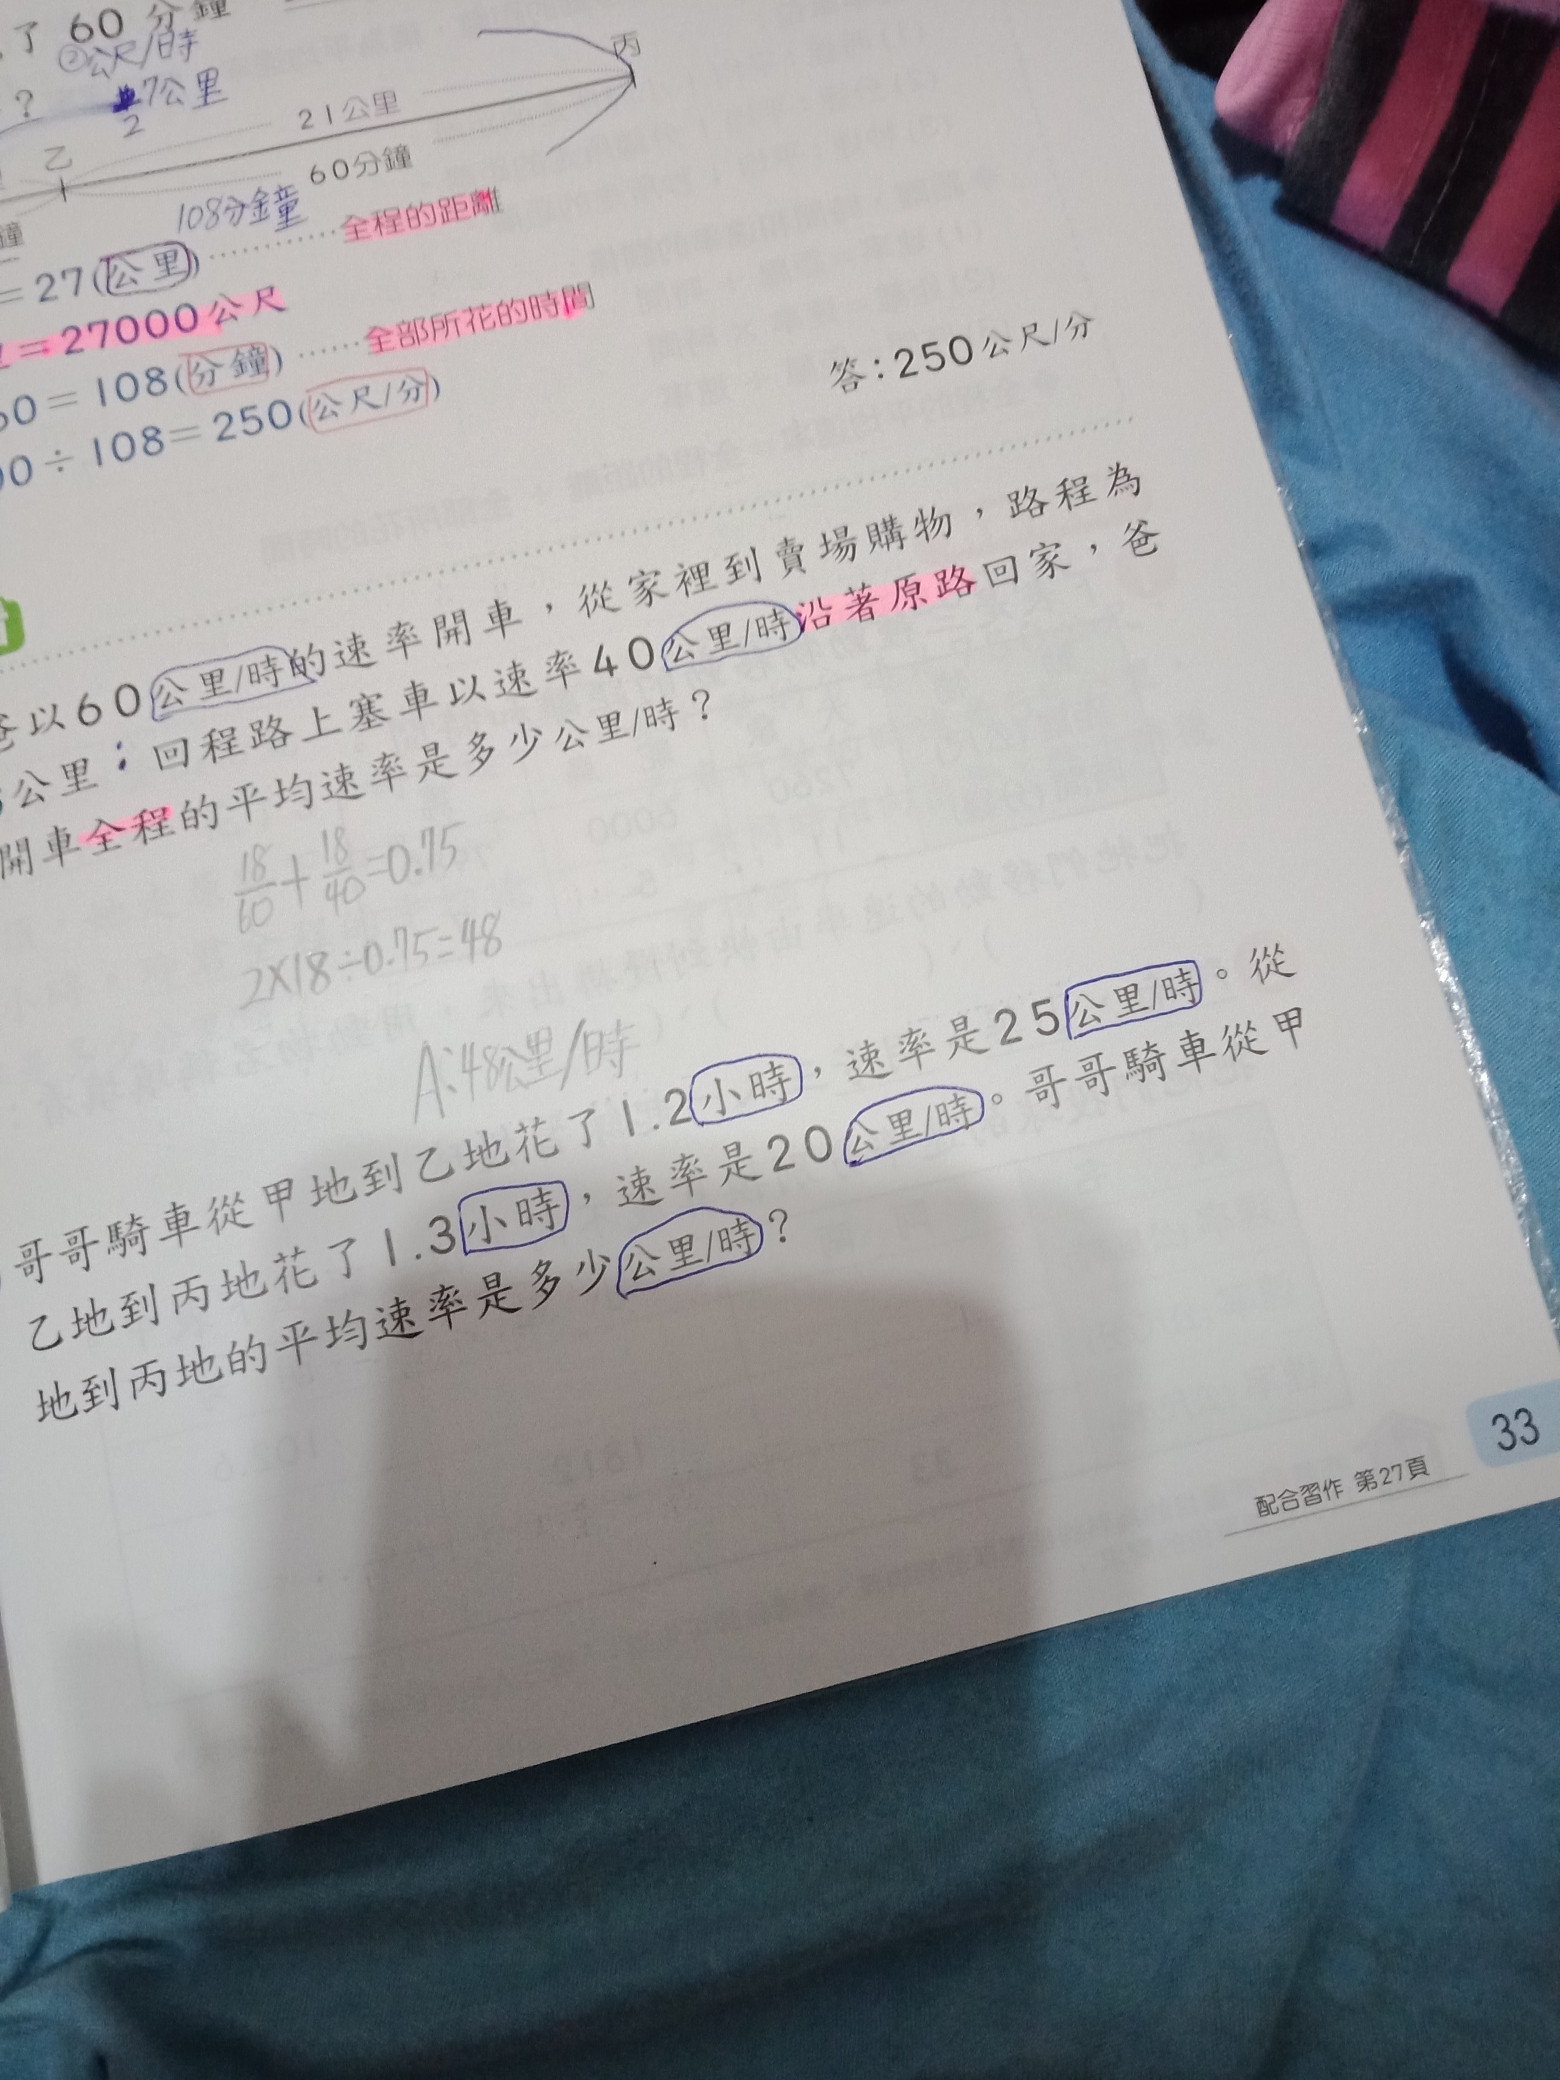 了 60 分鐘
②公尺/時
?
7公里
2
丙
21公里
乙
60分鐘
鐘
108分鐘
=27(公里)⋯⋯⋯⋯全程的距離
=27000公尺
60=108(分鐘)⋯⋯全部所花的時間
00÷108=250(公尺/分)
答:250公尺/分
爸以60公里/時的速率開車,從家裡到賣場購物,路程為
公里;回程路上塞車以速率40公里/時沿著原路回家,爸
開車全程的平均速率是多少公里/時?
18/60+18/40=0.75
2X18÷0.75=48
A:48公里/時
哥哥騎車從甲地到乙地花了1.2小時,速率是25公里/時。從
乙地到丙地花了1.3小時,速率是20公里/時。哥哥騎車從甲
地到丙地的平均速率是多少公里/時?
33
配合習作 第27頁